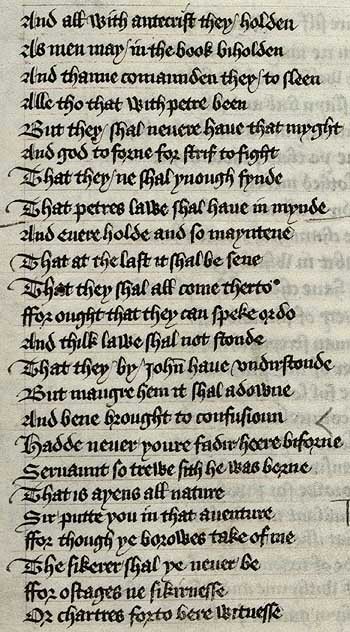 And all with antecrist they / holden
As men may / in the book biholden
And thanne comaunden they / to sleen
Alle tho that with petre been
But they / shal neuere haue that myght
And god to forne for strif to fight
That they / ne shal ynough fynde
That petres lawe shal haue in mynde
And euere holde and so mayntene
That at the last it shal be sene
That they shal all come therto
ffor ought that they can speke or do
And thilk lawe shal not stonde
That they by / John haue / vndirstonde
But maugre hem it shal adowne
And bene brought to confusioun
Hadde neuer youre fadir heere biforne
Seruaunt so trewe sith he was borne
That is ayens all nature
Sir putte you in that auenture
ffor though ye borowes take of me
The sikerer shal ye neuer be
ffor ostages ne sikirnesse
Or chartres forto bere witnesse